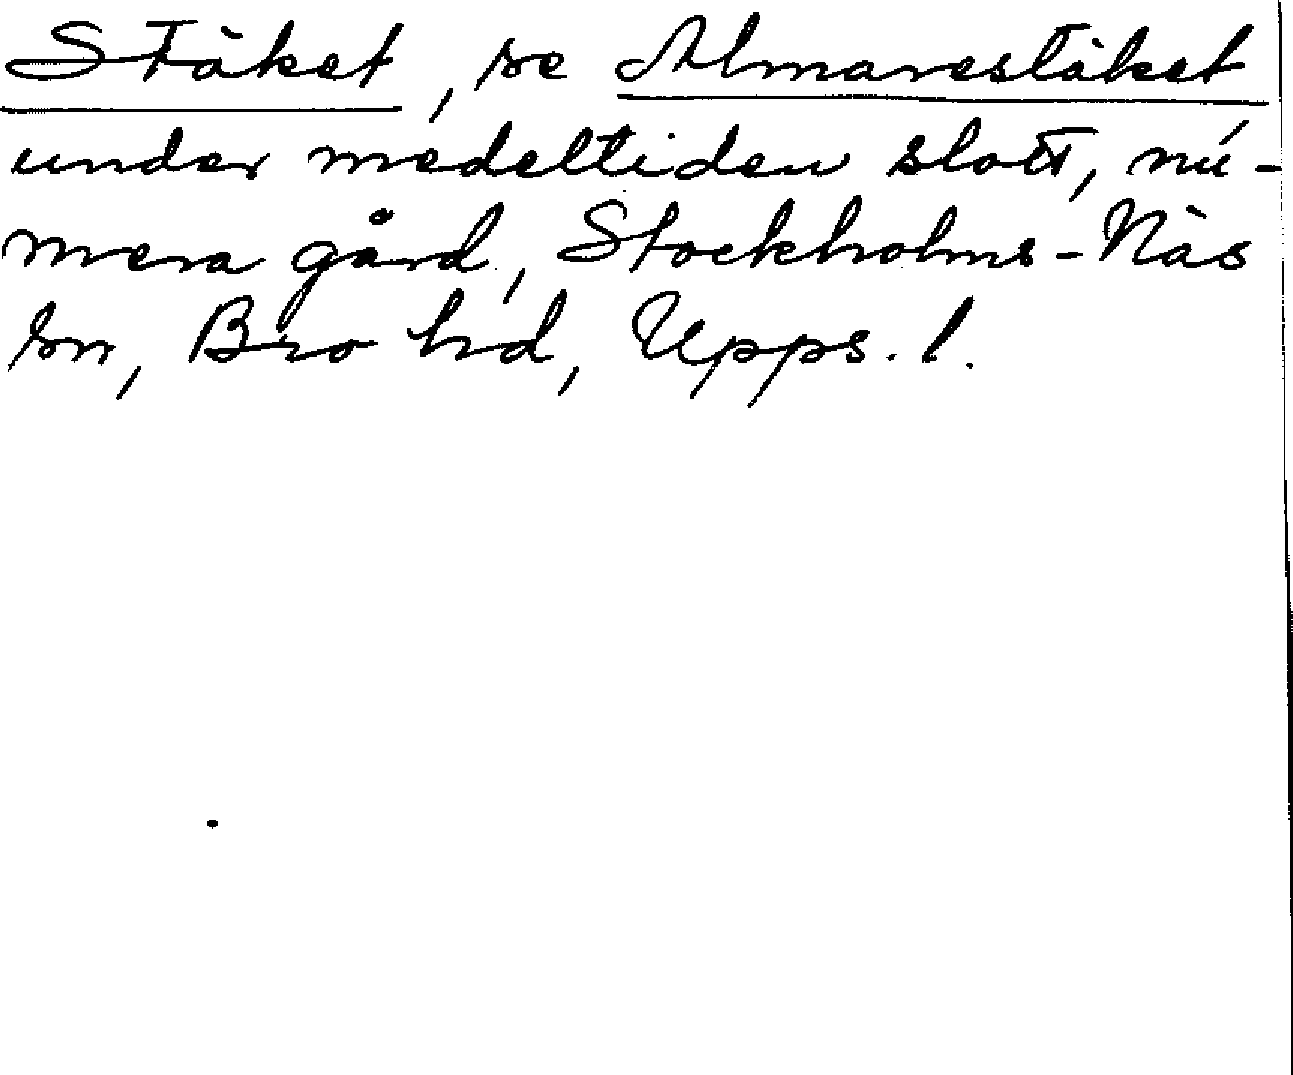 Stäket, se Almarestäket
under medeltiden slott, nu-
mera gård, Stockholms-Näs
sn, Bro hd, Upps. l.